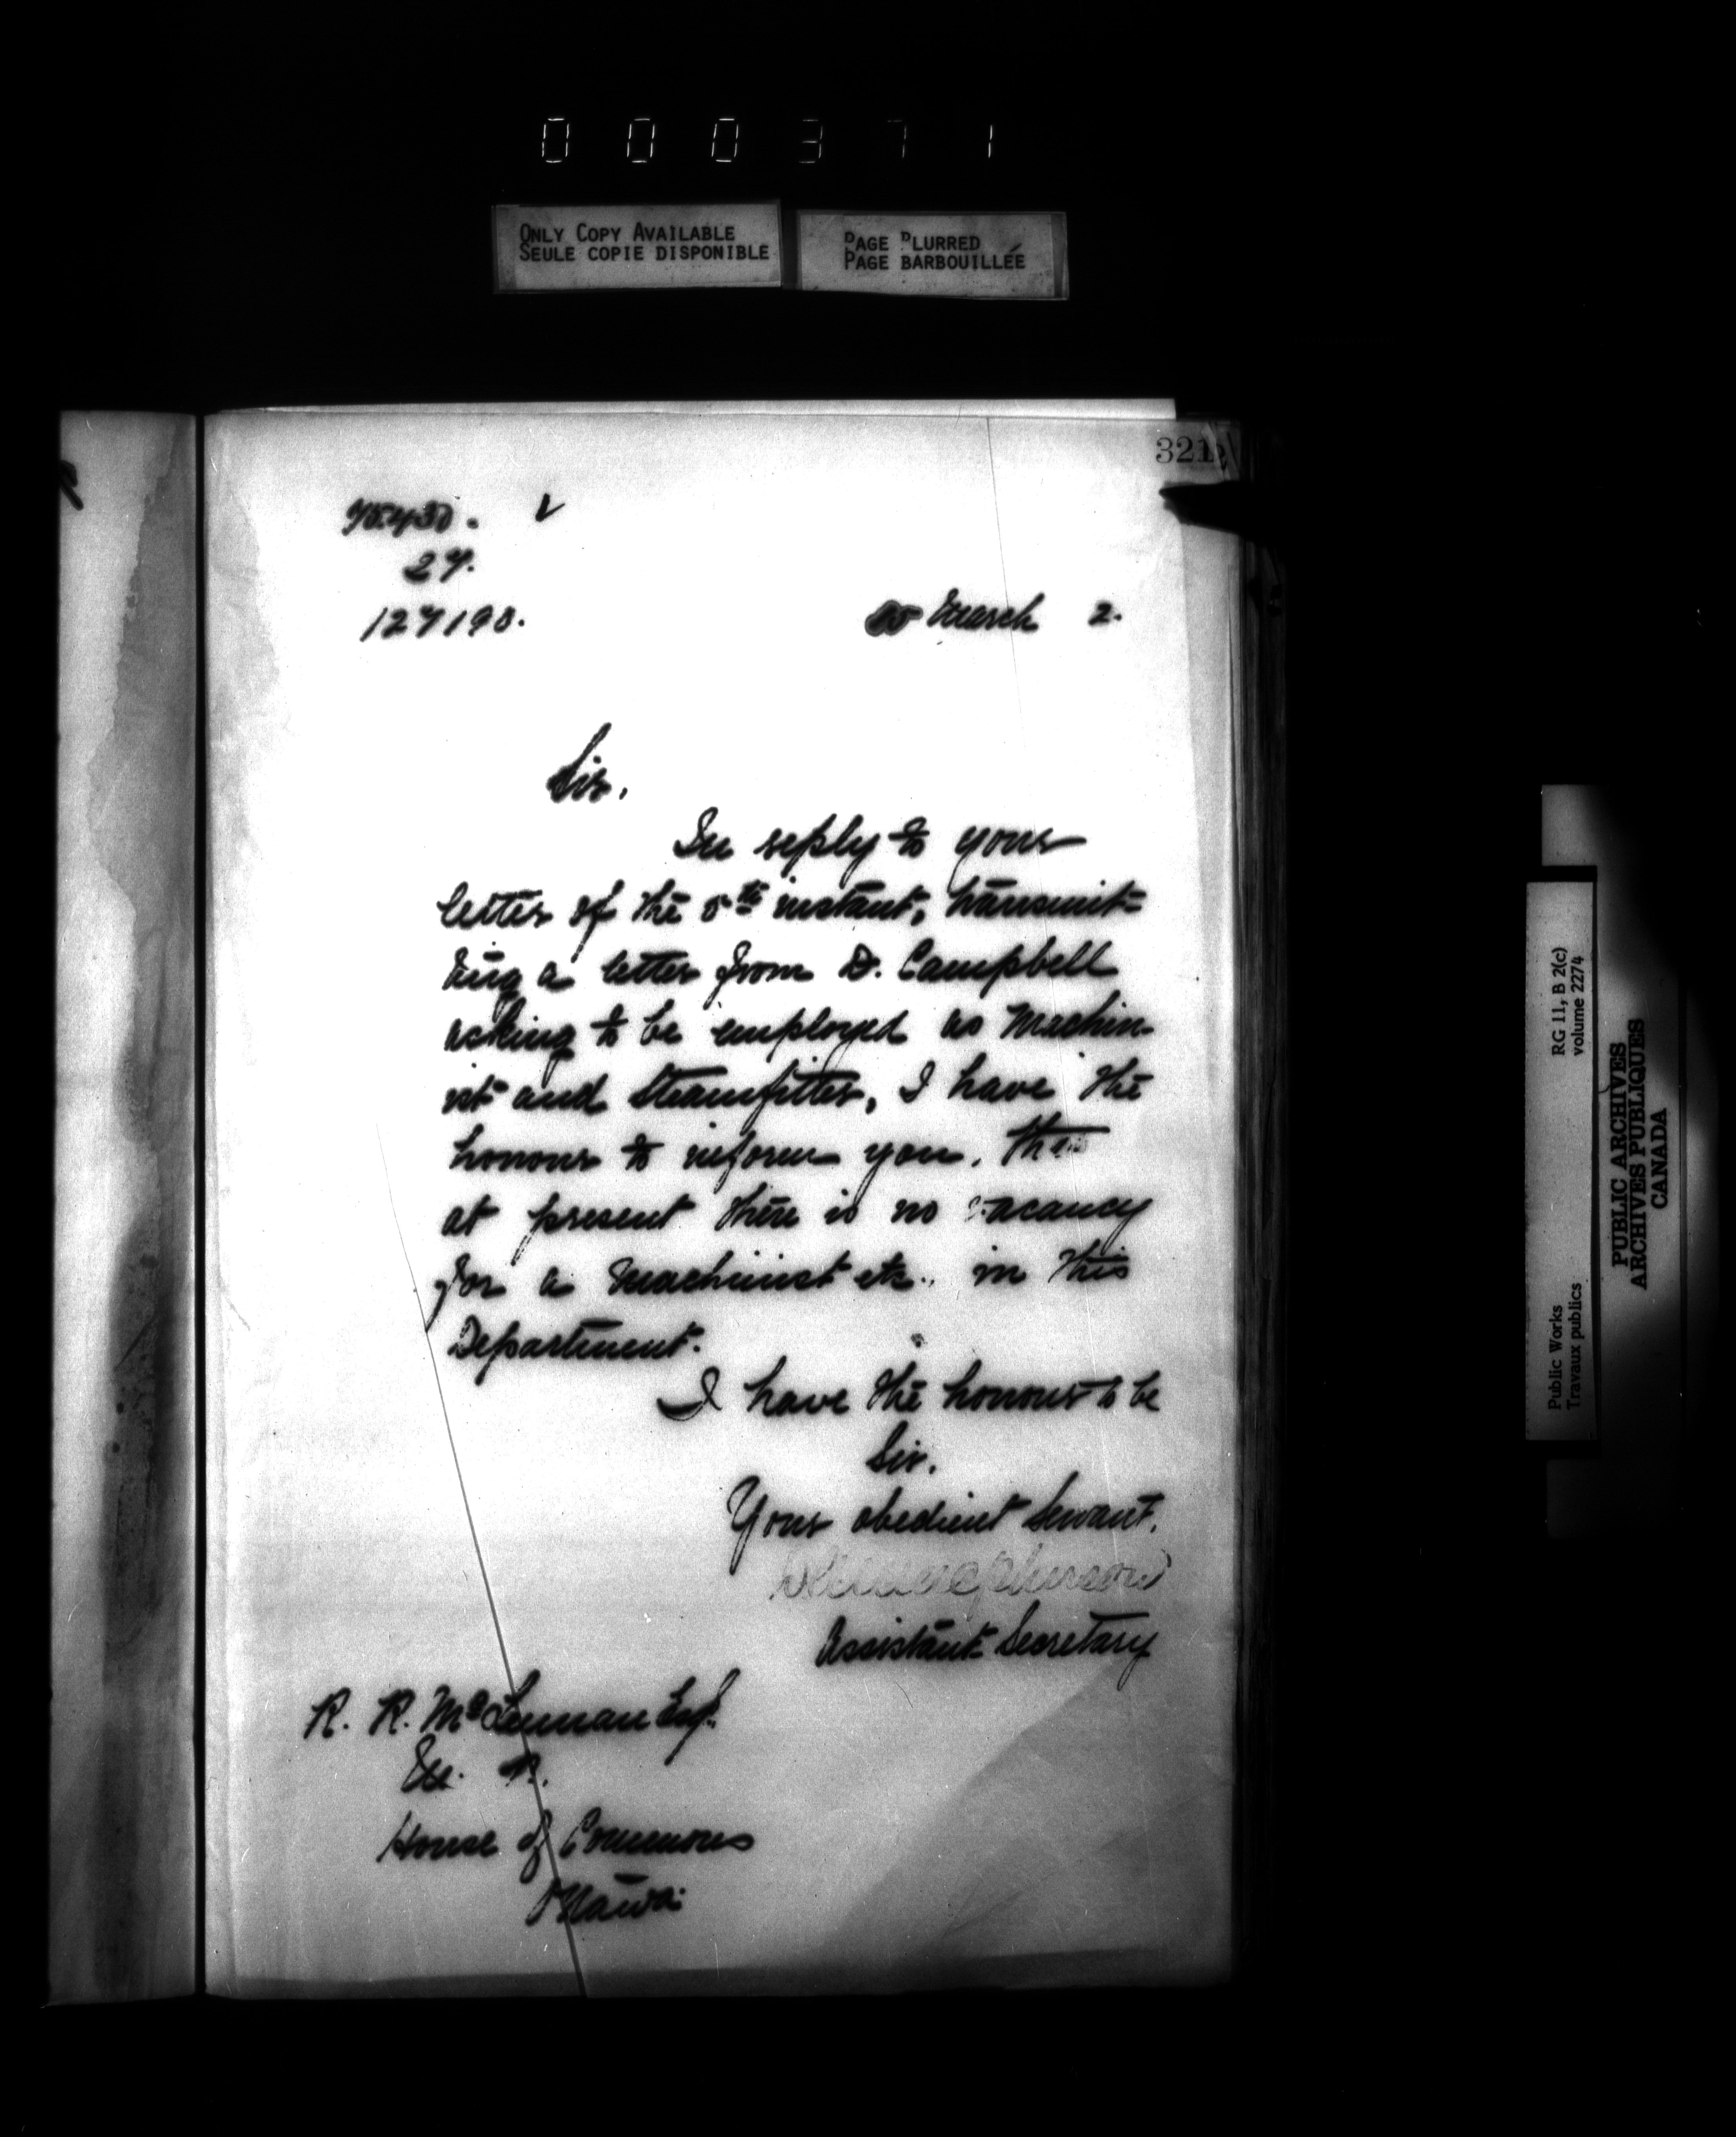 000371
ONLY COPY AVAILABLE
SEULE COPIE DISPONIBLE
PAGE BLURRED
PAGE BARBOUILLÉE
321
27.
127190.
March 2.
Sir,
In reply to your
letter of the 5th instant, transmit-
ting a letter from D. Campbell
asking to be employed as Machin-
ist and Steamfitter, I have the
honour to inform you, that
at present there is no vacancy
for a Machinist etc. in this
Department.
I have the honour to be
Sir.
Your obedient Servant.
Assistant Secretary
R. R. McLennan Esq.
M. P.
House of Commons
Ottawa
RG 11, B 2(c)
volume 2274
Public Works
Travaux publics
PUBLIC ARCHIVES
ARCHIVES PUBLIQUES
CANADA